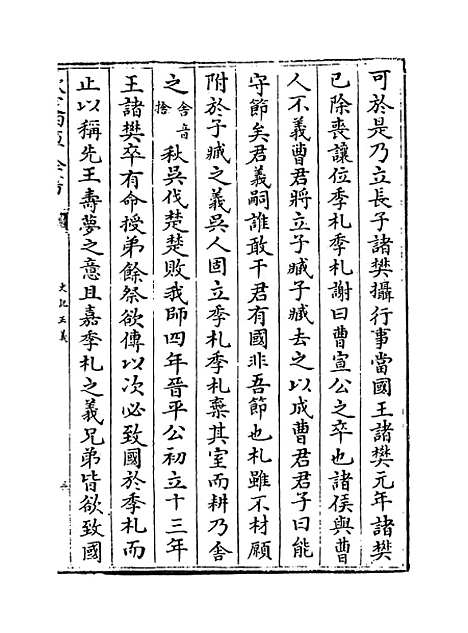 可於是乃立長子諸樊攝行事當國王諸樊元年諸樊
已除喪讓位季札季札謝曰曹宣公之卒也諸侯與曹
人不義曹君將立子臧子臧去之以成曹君君子曰能
守節矣君義嗣誰敢干君有國非吾節也札雖不材願
附於子臧之義吳人固立季札季札棄其室而耕乃舍
之舍音捨秋吳伐楚楚敗我師四年晉平公初立十三年
王諸樊卒有命授弟餘祭欲傳以次必致國於季札而
止以稱先王壽夢之意且嘉季札之義兄弟皆欲致國
史記正義